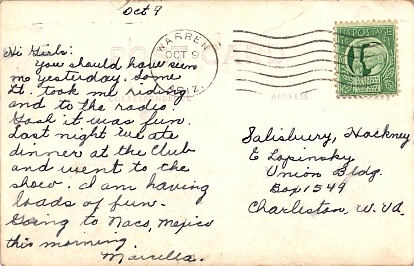 Oct 9
Hi Girls:
You should have seen
me yesterday. Some
Lt. took me riding
and to the radio.
Gosh it was fun.
Last night we ate
dinner at the Club
and went to the
show. I am having
loads of fun.
Going to Naco, Mexico
this morning.
Marcella.
POST CARD
WARREN
OCT 9
ARIZ.
ADDRESS
POSTAGE
1¢
Salisbury, Hackney
& Lopinsky
Union Bldg.
Box 1549
Charleston, W. Va.